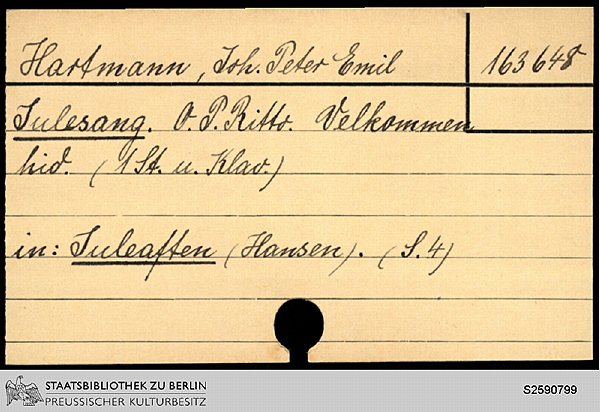 Hartmann, Joh. Peter Emil 163648
Julesang. O. P. Ritto. Velkommen
hid. (1 St. u. Klav.)
in: Juleaften (Hansen). (S. 4)
STAATSBIBLIOTHEK ZU BERLIN
PREUSSISCHER KULTURBESITZ
S2590799